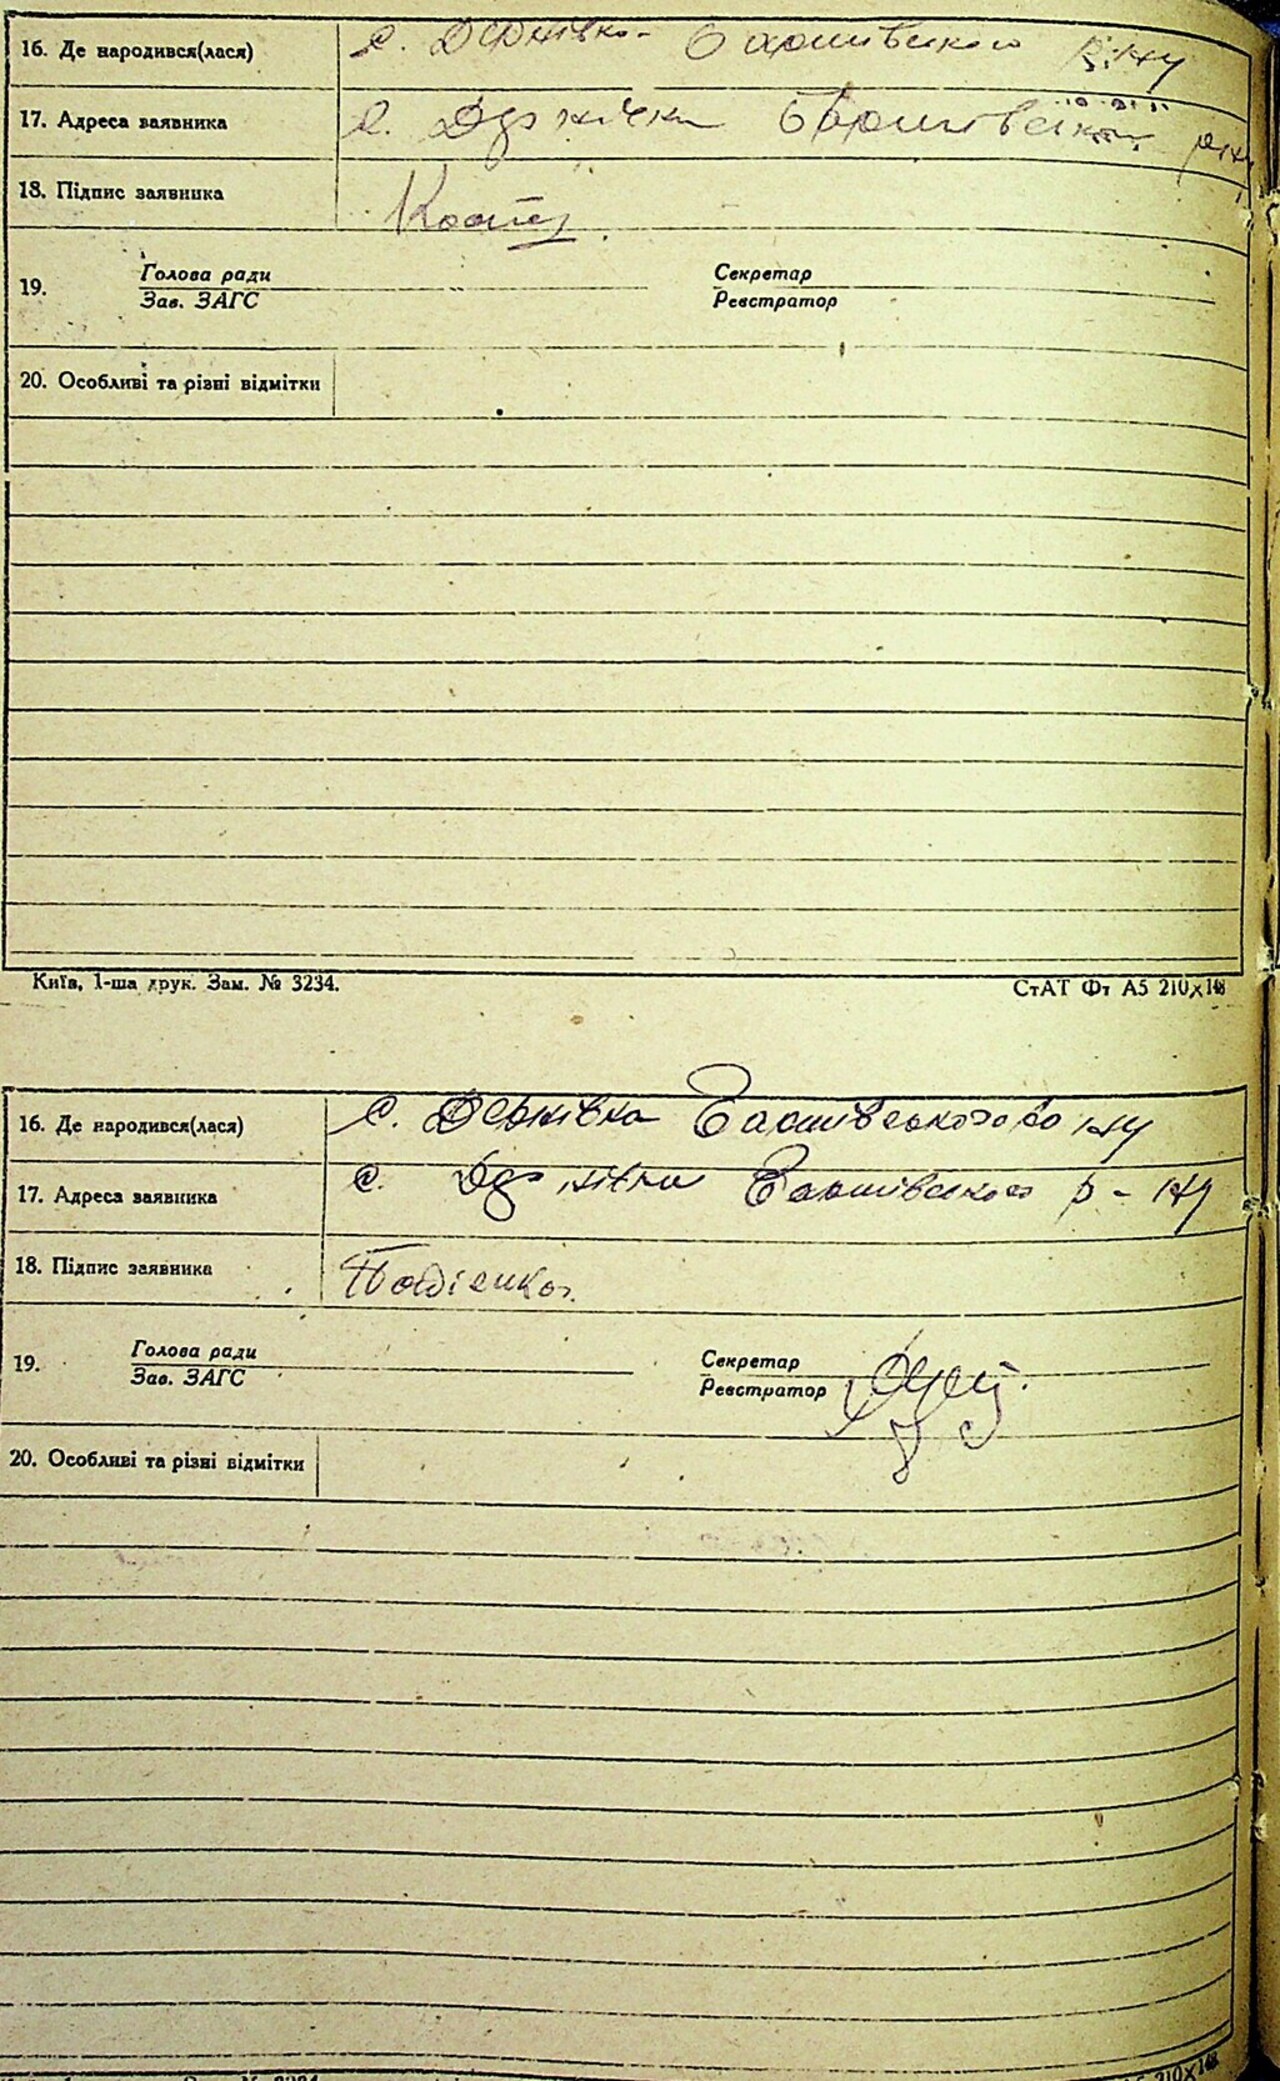 16. Де народився(лася) с. Дернівка Баришівського р-ну
17. Адреса заявника с. Дернівка Баришівського р-ну
18. Підпис заявника
19. Голова ради Секретар
Зав. ЗАГС Реєстратор
20. Особливі та різні відмітки
Київ, 1-ша друк. Зам. № 3234. СтАТ Фт А5 210×148
16. Де народився(лася) с. Дернівка Баришівського р-ну
17. Адреса заявника с. Дернівка Баришівського р-ну
18. Підпис заявника
19. Голова ради Секретар
Зав. ЗАГС Реєстратор
20. Особливі та різні відмітки
210×148